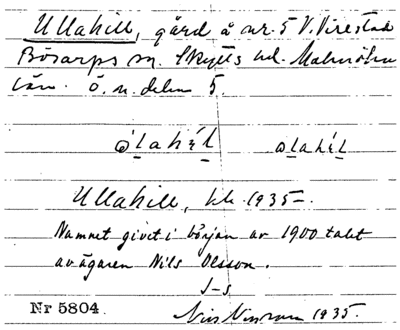 Ullahill, gård å nr. 5 V. Virestad
Bösarps sn. Skytts hd. Malmöhus
län. ö. n. delen 5.
ólahíl olahíl
Ullahill, kk. 1935-
Namnet givet i början av 1900 talet
av ägaren Nils Olsson.
J-s
Nr 5804. Nils 1935.